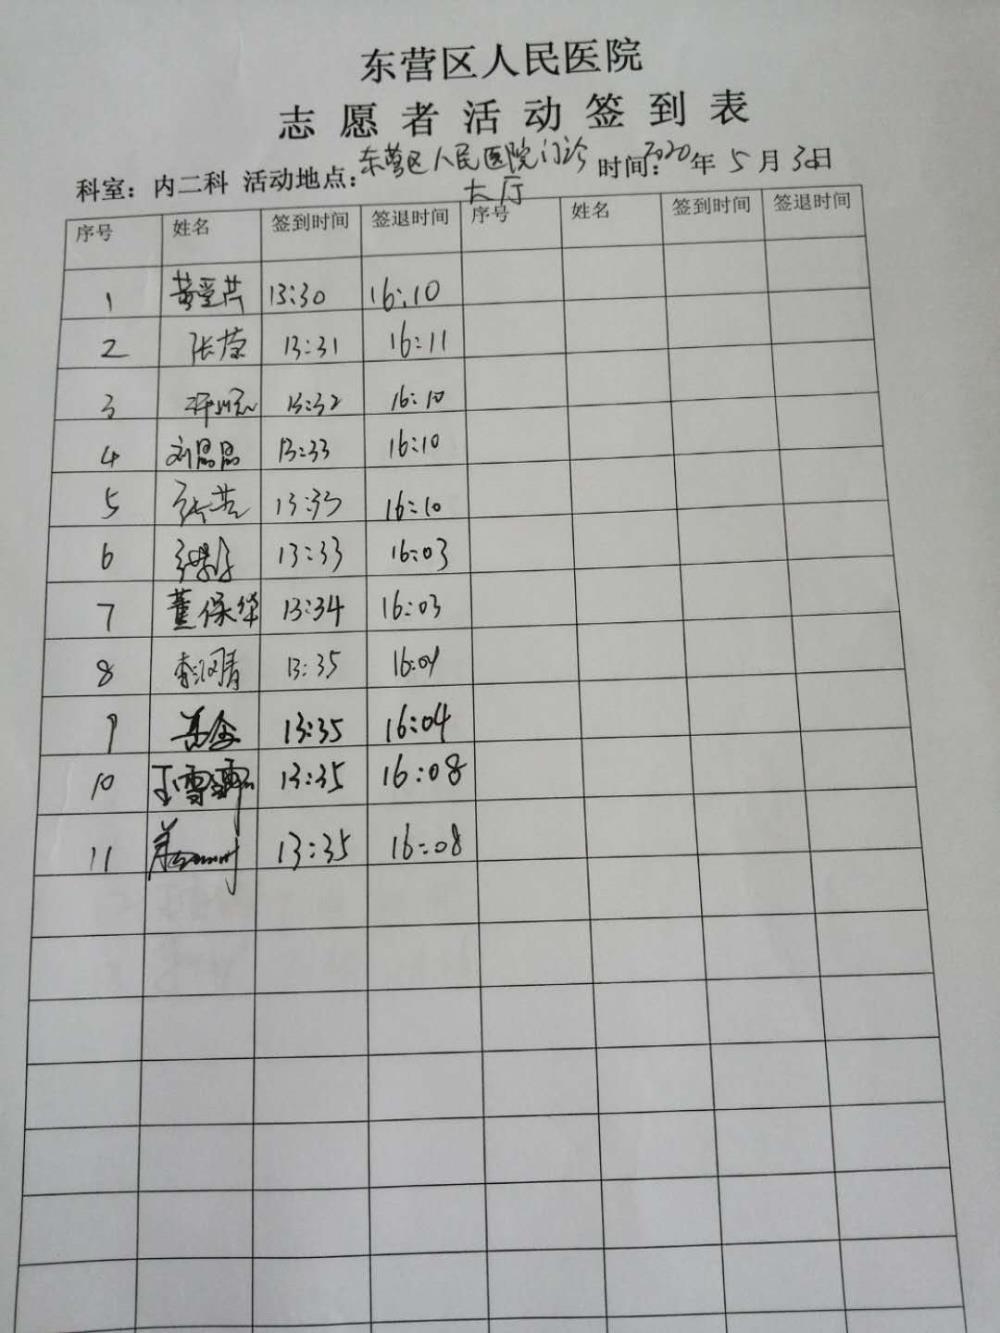 东营区人民医院
志愿者活动签到表
科室：内二科 活动地点：东营区人民医院门诊大厅 时间：2020年5月30日
序号 姓名 签到时间 签退时间 序号 姓名 签到时间 签退时间
1 13:30 16:10
2 张蓉 13:31 16:11
3 13:32 16:10
4 刘晶晶 13:33 16:10
5 13:33 16:10
6 13:33 16:03
7 董保华 13:34 16:03
8 13:35 16:04
9 13:35 16:04
10 13:35 16:08
11 13:35 16:08